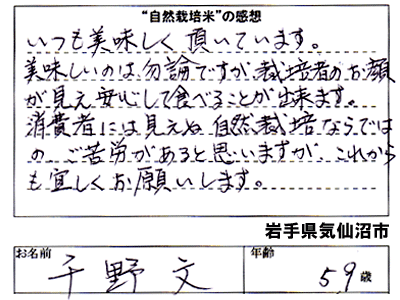 “自然栽培米”の感想
いつも美味しく頂いています。
美味しいのは勿論ですが、栽培者のお顔
が見え安心して食べることが出来ます。
消費者には見えぬ自然栽培ならでは
の、ご苦労があると思いますが、これから
も宜しくお願いします。
岩手県気仙沼市
お名前 千野文 年齢 59歳